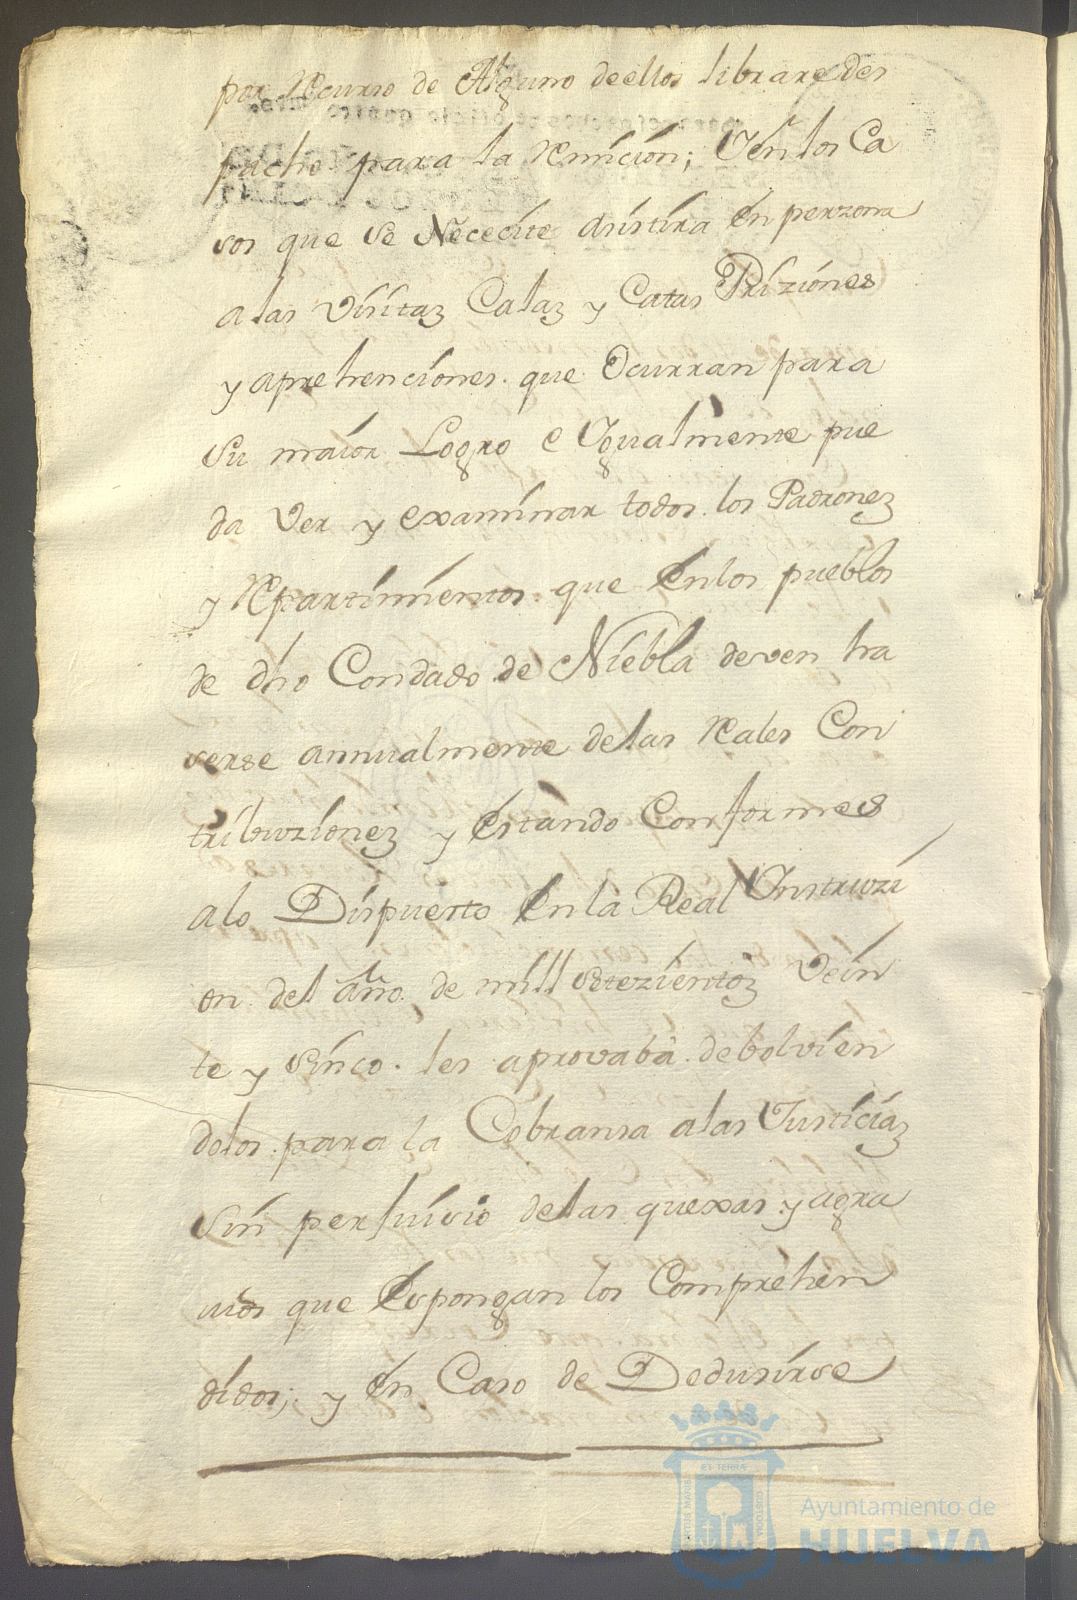 por Recurso de Alguno deellos librare des
pacho para la Remicion; Y en los Ca
sos que se Nececite Asistira en perzona
a las Visitaz Calaz y Catas Priziónes
y aprehenciones que Ocurran para
su maior Logro e Ygualmente pue
da Ver y examinar todos los Padronez
y Repartimientos que en los pueblos
de dho Condado de Niebla deven ha
serse annualmente delas Reales Con
tribuzionez y estando Conformes
alo Dispuesto en la Real Ynstruzi
on del año de mill setezientoz Vein
te y sinco les aprovaba debolvien
dolos para la Cobransa a las Justiciaz
sin perjuisio delas quexas y agra
vios que Espongan los Comprehen
didos; y en Caso de Dedusirse
Ayuntamiento de
HUELVA